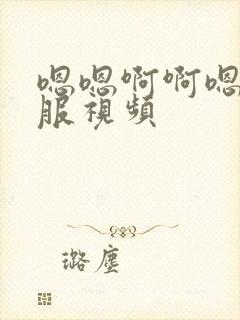 嗯嗯啊啊嗯
服視頻
璐塵